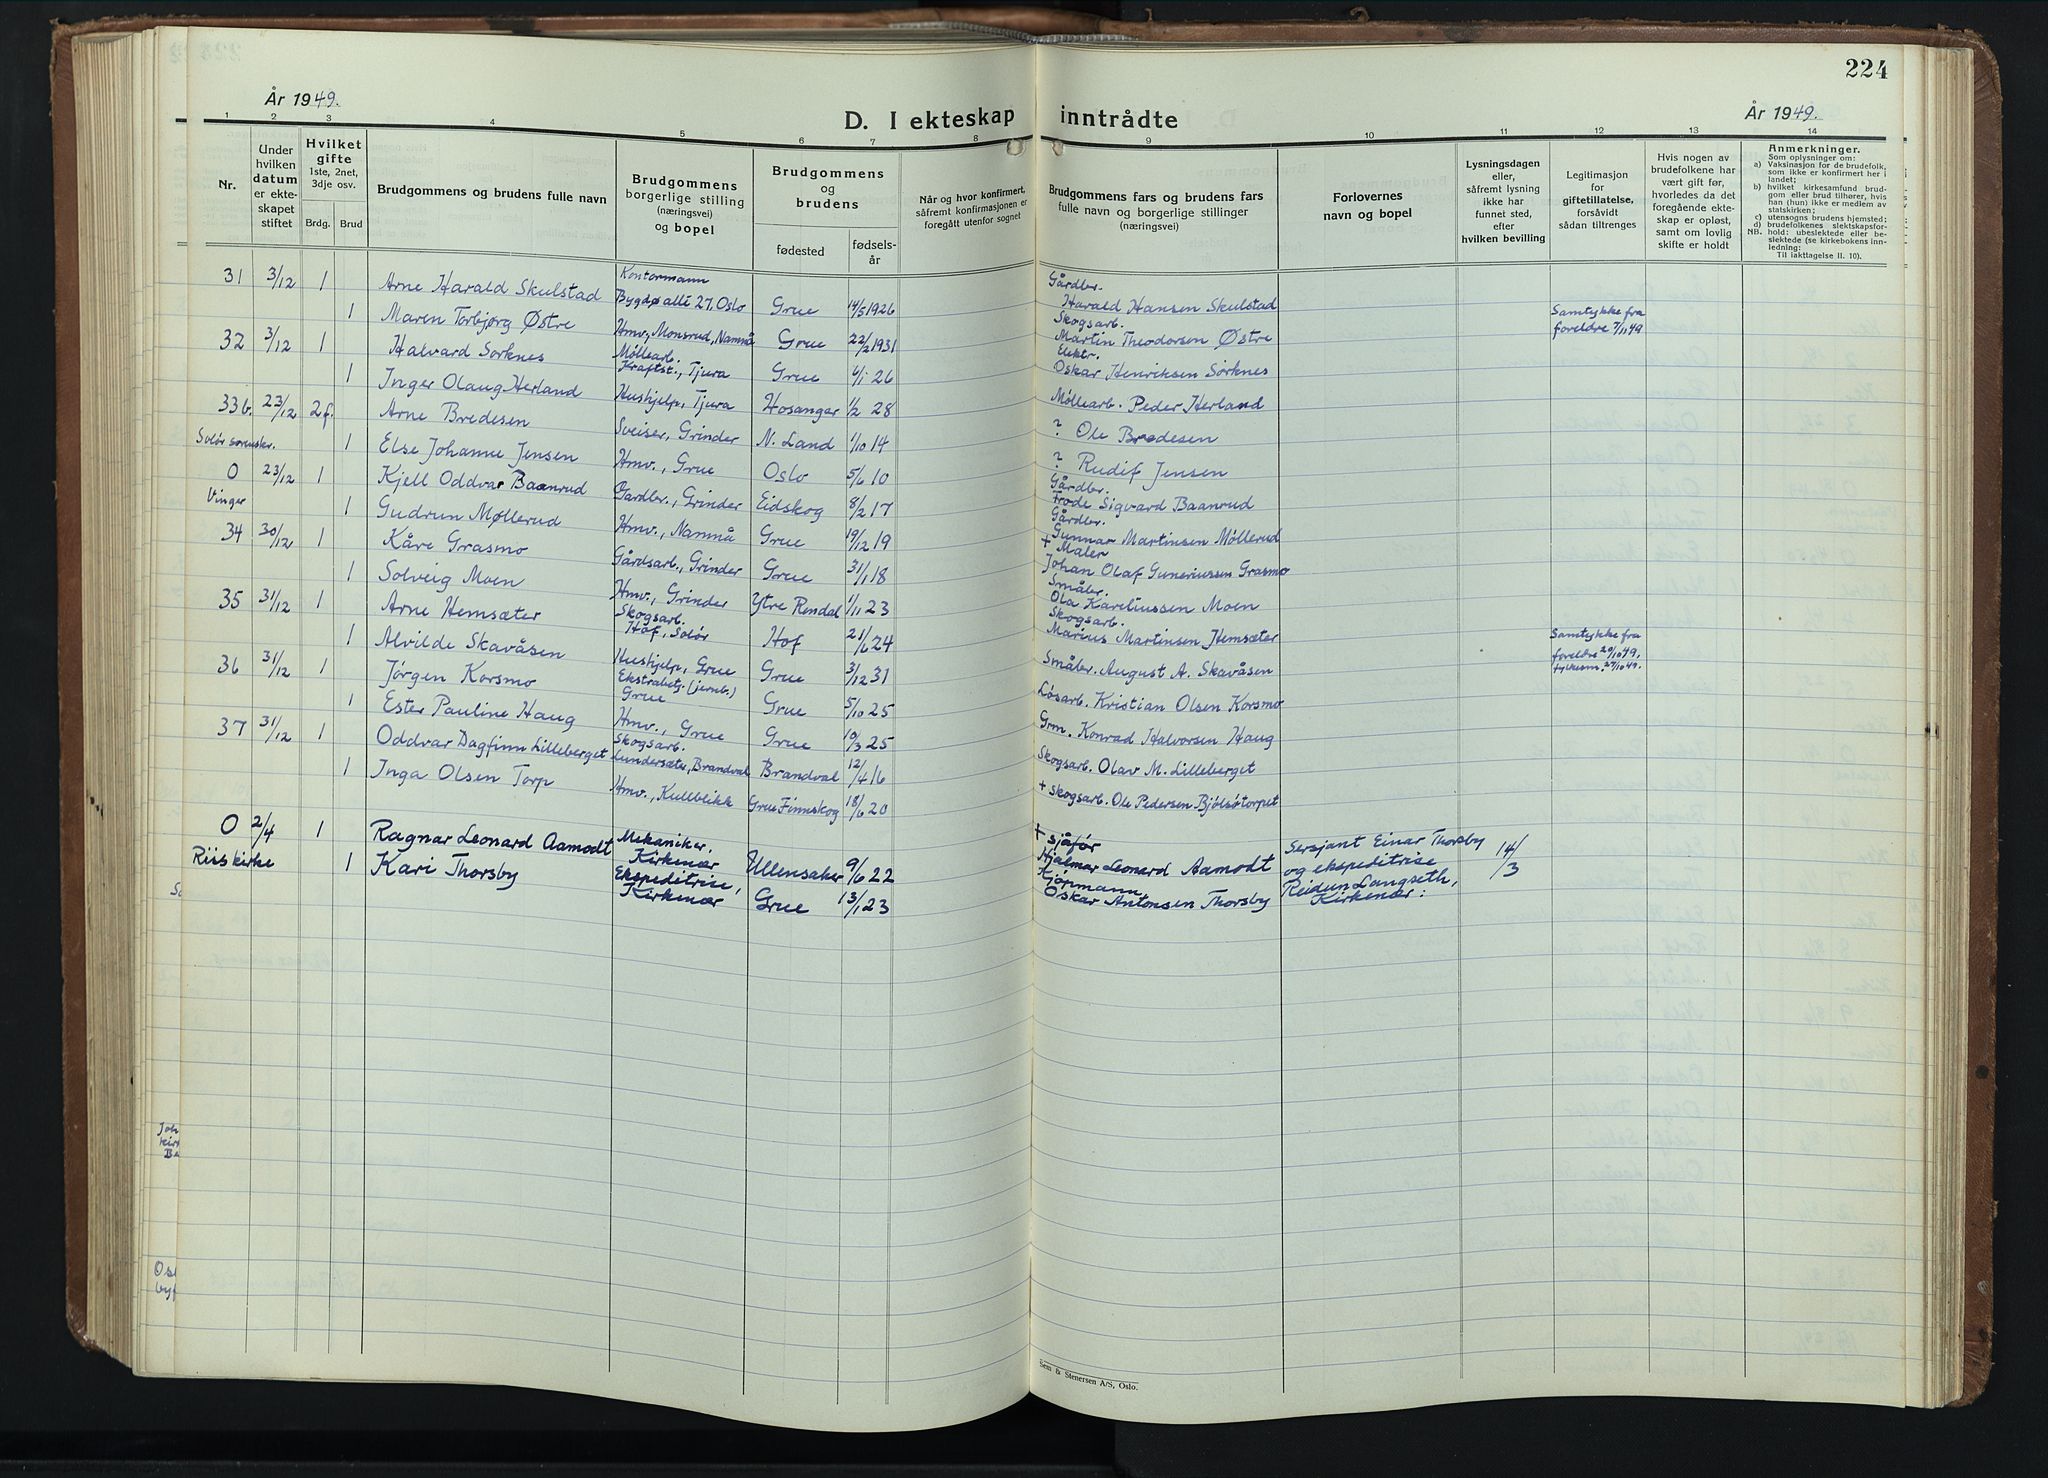 224
År 1949.
D. I ekteskap inntrådte
År 1949.
1 2 3 4 5 6 7 8 9 10 11 12 13 14
Nr.
Under hvilken datum er ekteskapet stiftet
Hvilket gifte 1ste, 2net, 3dje osv.
Brdg. Brud
Brudgommens og brudens fulle navn
Brudgommens borgerlige stilling (næringsvei) og bopel
Brudgommens og brudens
fødested
fødselsår
Når og hvor konfirmert, såfremt konfirmasjonen er foregått utenfor sognet
Brudgommens fars og brudens fars fulle navn og borgerlige stillinger (næringsvei)
Forlovernes navn og bopel
Lysningsdagen eller, såfremt lysning ikke har funnet sted, efter hvilken bevilling
Legitimasjon for giftetillatelse, forsåvidt sådan tiltrenges
Hvis nogen av brudefolkene har vært gift før, hvorledes da det foregående ekteskap er opløst, samt om lovlig skifte er holdt
Anmerkninger.
Som oplysninger om:
a) Vaksinasjon for de brudefolk, som ikke er konfirmert her i landet;
b) hvilket kirkesamfund brudgom eller brud tilhører, hvis han (hun) ikke er medlem av statskirken;
c) utensogns brudens hjemsted;
d) brudefolkenes slektskapsforhold: ubeslektede eller beslektede (se kirkebokens innledning: Til iakttagelse II. 10).
NB.
31 3/12 1 Arne Harald Skulstad Kontormann Bygdø allé 27, Oslo Grue 14/5 1926 Gårdbr. Harald Hansen Skulstad
1 Maren Torbjørg Østre Hmv., Monsrud, Namnå Grue 22/2 1931 Skogsarb. Martin Theodorsen Østre Samtykke fra foreldre 7/11 49
32 3/12 1 Halvard Sorknes Møllearb. Kraftst., Tjura Grue 6/1 26 Elektr. Oskar Henriksen Sørknes
1 Inger Olaug Herland Hushjelp, Tjura Hosangar 1/2 28 Møllearb. Peder Herland
33b. 23/12 2f. Arne Bredesen Sveiser, Grinder N. Land 1/10 14 ? Ole Bredesen
Solør sorenskr. 1 Else Johanne Jensen Hmv., Grue Oslo 5/6 10 ? Rudif Jensen
0 23/12 1 Kjell Oddvar Baanrud Gardbr., Grinder Eidskog 8/2 17 Gårdbr. Frode Sigvard Baanrud
Vinger 1 Gudrun Møllerud Hmv., Namnå Grue 19/12 19 Gårdbr. Gunnar Martinsen Møllerud
34 30/12 1 Kåre Grasmo Gårdsarb., Grinder Grue 31/1 18 + Maler Johan Olaf Guneriussen Grasmo
1 Solveig Moen Hmv., Grinder Ytre Rendal 1/11 23 Småbr. Ola Kareliussen Moen
35 31/12 1 Arne Hemsæter Skogsarb. Hof, Solør Hof 21/6 24 Skogsarb. Marius Martinsen Hemsæter
1 Alvilde Skavåsen Hushjelp, Grue Grue 3/12 31 Småbr. August A. Skavåsen Samtykke fra foreldre 20/10 49, fylkesm. 27/10 49.
36 31/12 1 Jørgen Korsmo Ekstrabetj. (jernb.) Grue Grue 5/10 25 Løsarb. Kristian Olsen Korsmo
1 Ester Pauline Haug Hmv., Grue Grue 10/3 25 Grm. Konrad Halvorsen Haug
37 31/12 1 Oddvar Dagfinn Lilleberget Skogsarb. Lundersæter, Brandval Brandval 12/4 16 Skogsarb. Olav M. Lilleberget
1 Inga Olsen Torp Hmv., Kulblikk Grue Finnskog 18/6 20 + Skogsarb. Ole Pedersen Bjølsøtorpet
0 2/4 1 Ragnar Leonard Aamodt Mekaniker, Kirkenær Ullensaker 9/6 22 + Sjåfør Hjalmar Leonard Aamodt Sersjant Einar Thorsby 14/3
Riis kirke 1 Kari Thorsby Ekspeditrise, Kirkenær Grue 13/1 23 Hjørmann, Oskar Antonsen Thorsby og ekspeditrise Reidun Langseth, Kirkenær:
Sem & Stenersen A/S, Oslo.